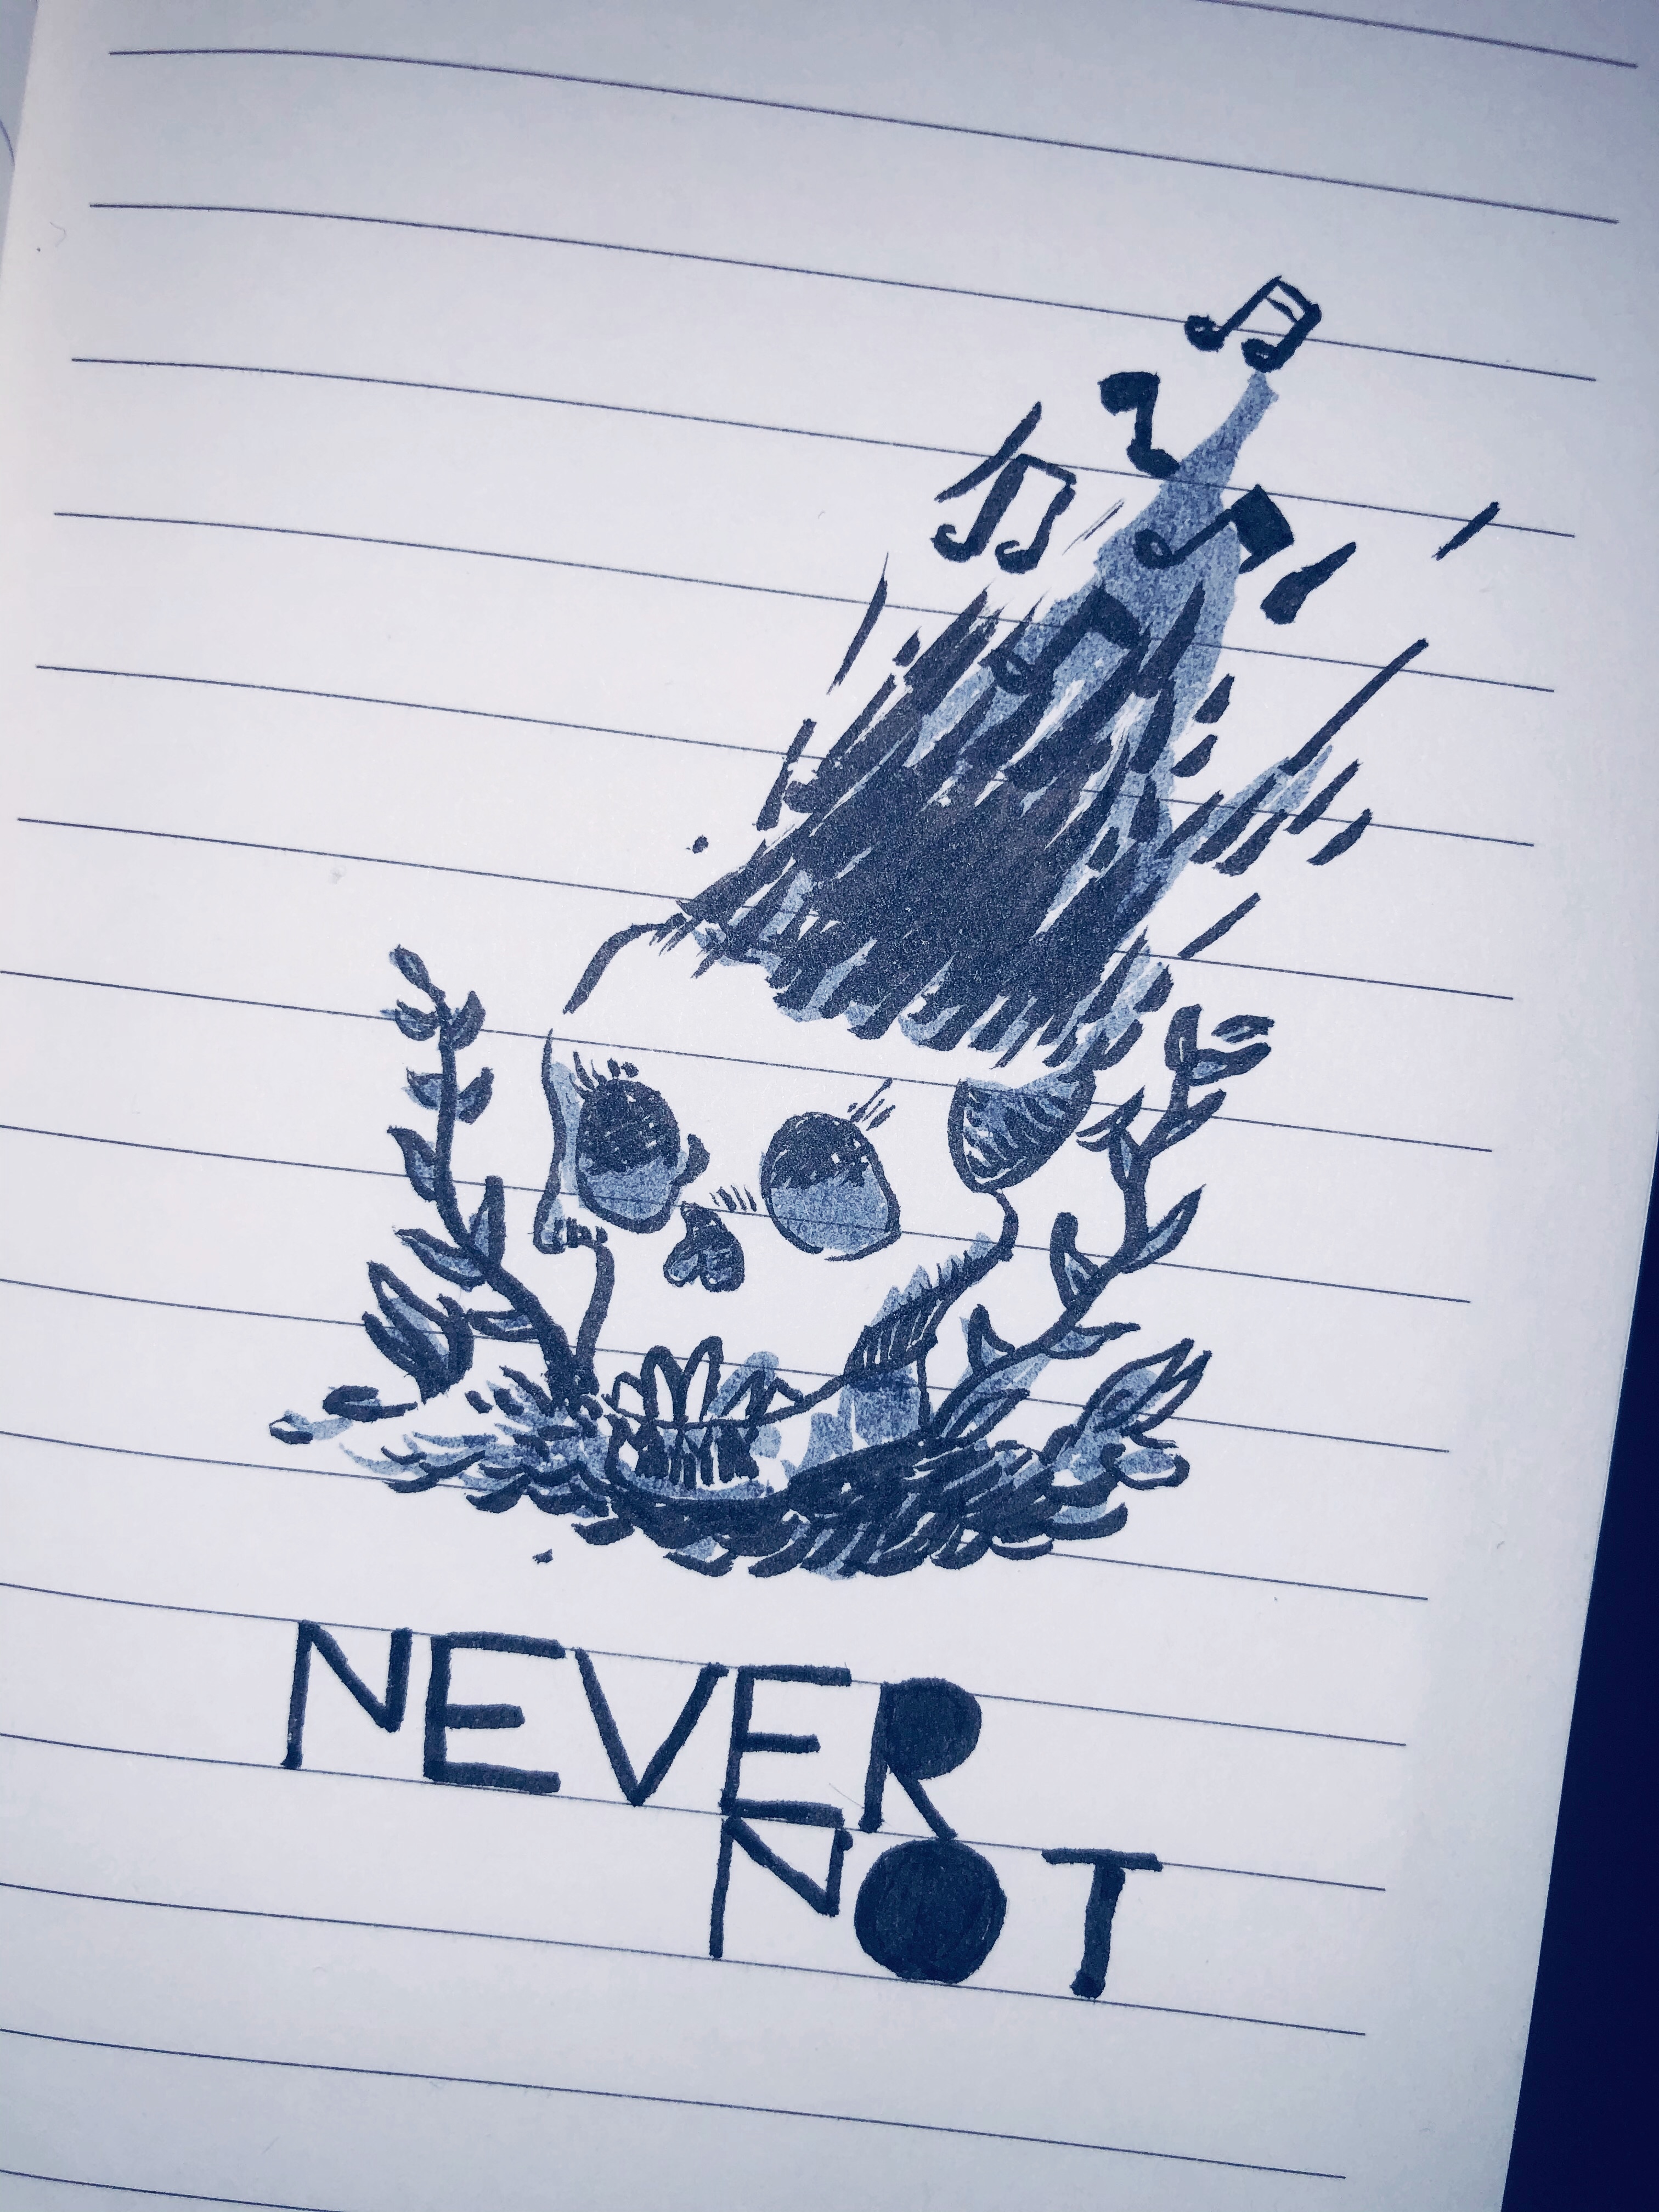 NEVER
NOT